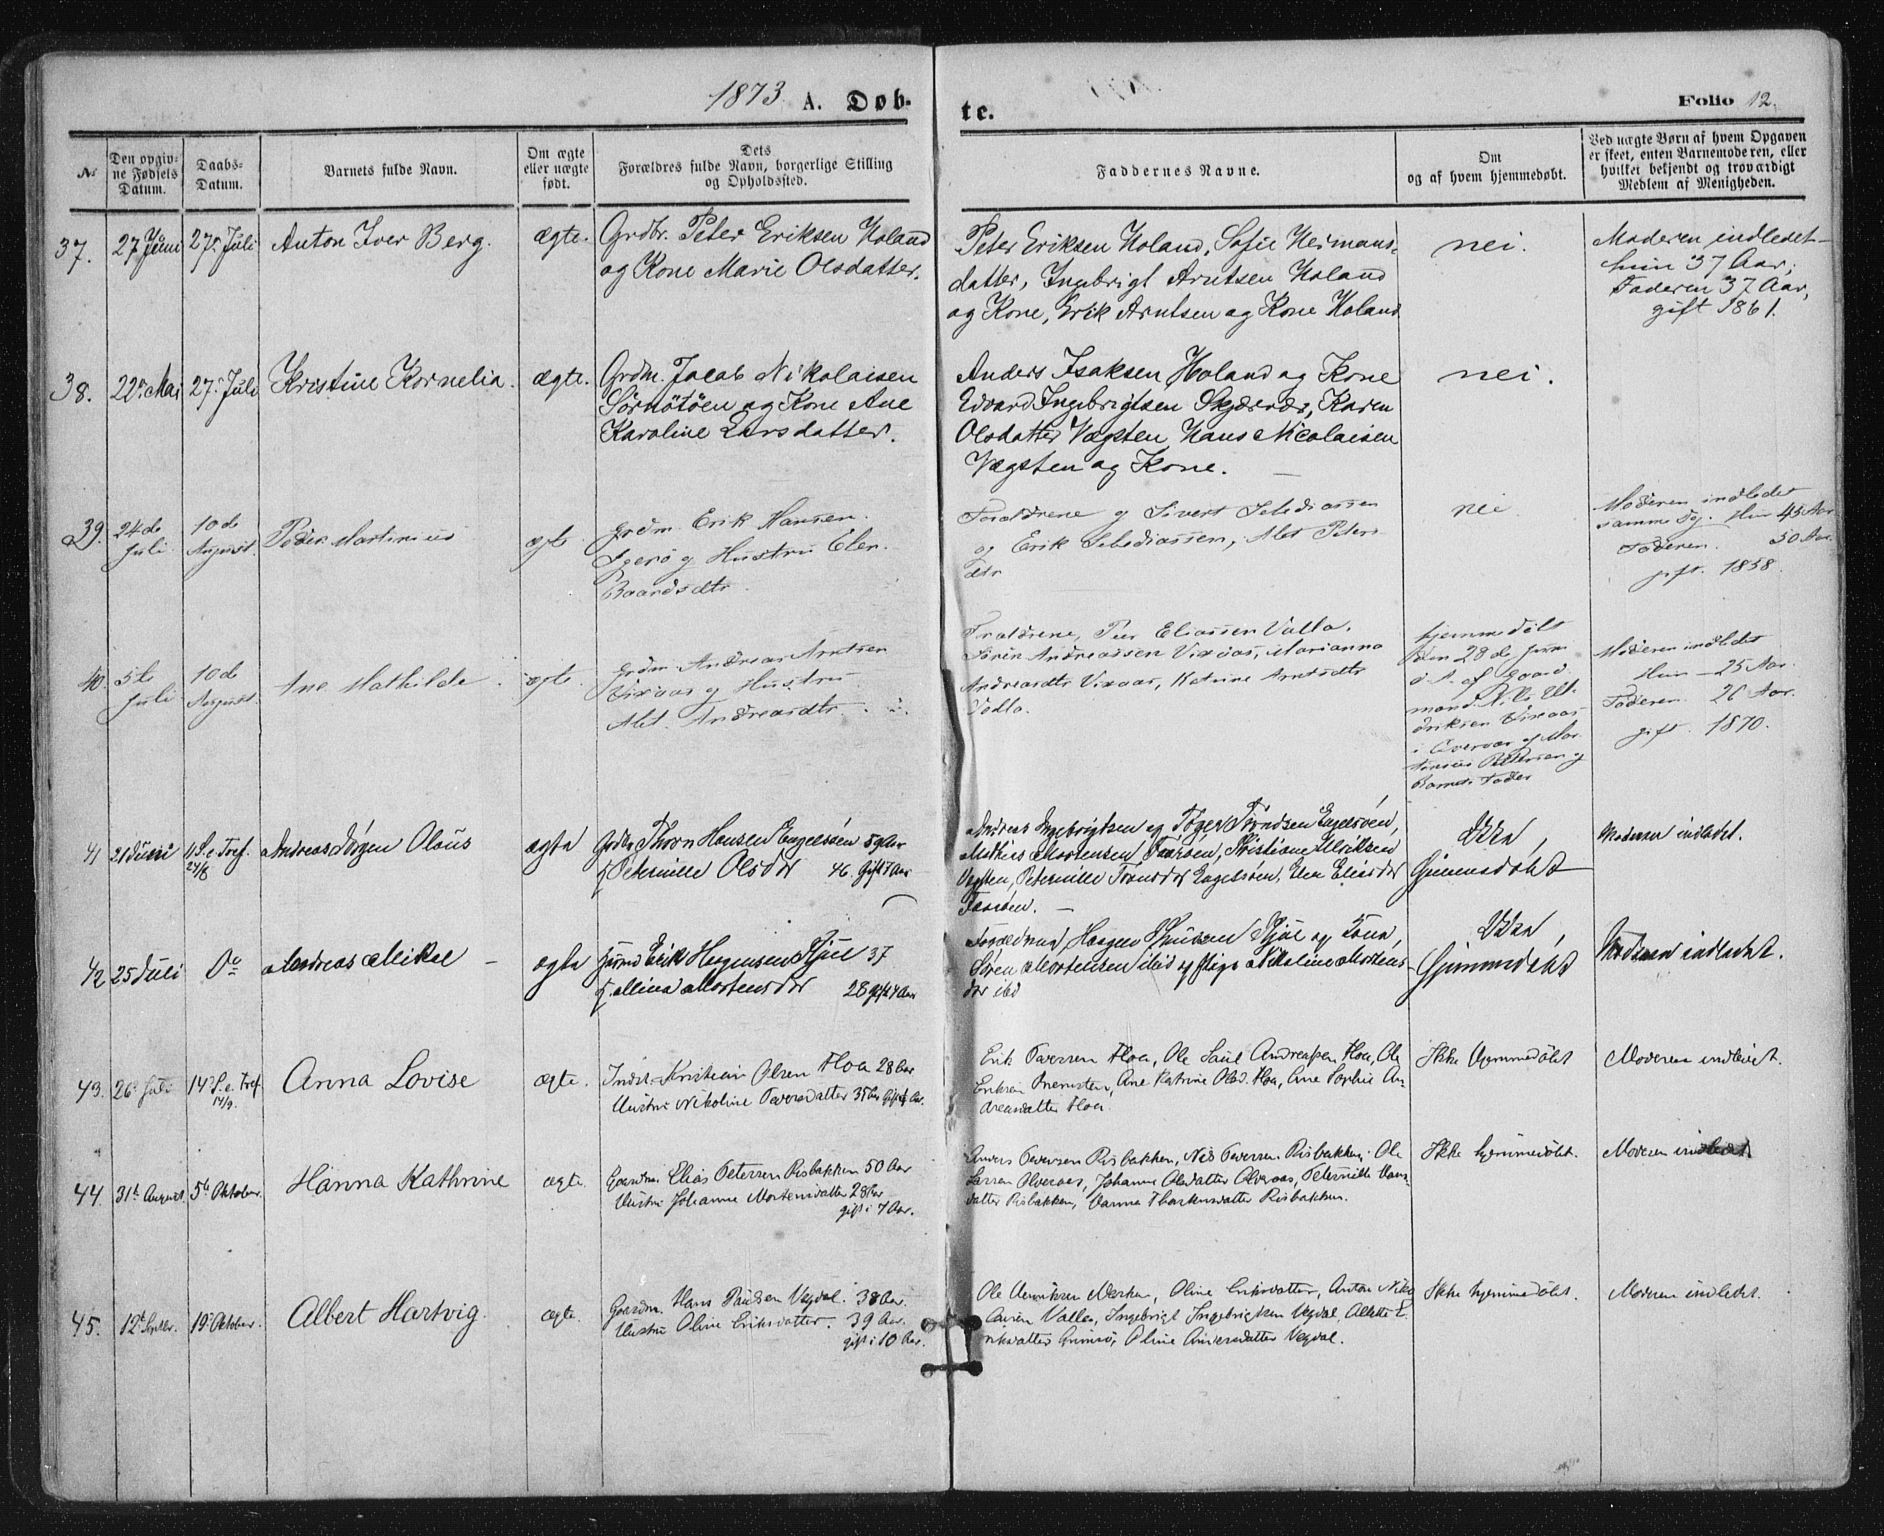 1873 A. Døb-
te.
Folio 12.
No
Den opgiv-
ne Fødsels
Datum.
Daabs-
Datum.
Barnets fulde Navn.
Om ægte
eller uægte
født.
Dets
Forældres fulde Navn, borgerlige Stilling
og Opholdssted.
Faddernes Navne.
Om
og af hvem hjemmedøbt.
Ved uægte Børn af hvem Opgaven
er skeet, enten Barnemoderen, eller
hvilket bekjendt og troværdigt
Medlem af Menigheden.
37.
27 Juni
27. Juli
Anton Iver Berg.
ægte.
Grdbr. Peter Eriksen Holand
og Kone Marie Olsdatter.
Peter Eriksen Holand, Sofie Heimans-
datter, Ingebrigt Arntsen Holand
og Kone, Erik Arntsen og Kone Holand
nei.
Moderen indledet
hun 37 Aar;
Faderen 37 Aar,
gift 1861.
38.
22. Mai
27. Juli
Kristine Kornelia.
ægte.
Grdm. Jacob Nikolaisen
Sørnøtøen og Kone Ane
Karoline Larsdatter.
Anders Isaksen Holand og Kone
Edvard Ingebrigtsen Skjærnæs, Karen
Olsdatter Vægsten, Hans Nicolaisen
Vægsten og Kone.
nei.
39.
24de
Juli
10de
August.
Peder Martinius
ægte
Grdm. Erik Hansen
og Hustru Elen
Baardsdtr.
Forældrene og Sivert
og Erik Alet Peters
dtr
nei
Moderen indledet
samme Dg. Hun 45 Aar
Faderen. 50 Aar.
gift. 1858.
40
5te
Juli
10de
August.
Ane Mathilde
ægte.
Grdm. Andreas Arntsen
Vixaas og Hustru
Alet Andreasdtr.
Forældrene, Peer Eliassen Valla.
Søren Andreassen Vixaas, Marianna
Andreasdtr Vixaas, Katrine Arntsdtr
Valla.
Hjemmedøbt
den 28de Juni
af Gaard
mand Nils
Vixaas
og
Petersen og
Barnets Fader
Moderen indledet
Hun 25 Aar.
Faderen 26 Aar.
gift. 1870.
41
21 Juni
11 S. e. Tref.
24/8
Andreas Jørgen Olaus
ægte
Hansen Engelsøen 59 Aar
Peternille Olsdtr 46. Gift 7 Aar
Andreas Ingebrigtsen og Engelsøen,
Mathis Mortensen Kristiane Ulriksen
Vegsten, Peternille Engelsøen, Elen Eliasdtr
Ikke
Gjemmedøbt
Moderen indledet.
42
25 Juli
Do
Andreas Mikal
ægte
Erik Haagensen Hjul 37
Mina Mortensdtr 28 gift 4 Aar
Forældrene, Haagen Hjul og Kone,
Søren Mortensen ibid og Pige Nikoline Mortens-
dtr ibd
Ikke
Gjemmedøbt
Moderen indledet.
43.
26. Juli
14 S. e. Tref.
14/9.
Anna Lovise
ægte.
Inder. Kristian Olsen Floa 28 Aar
Hustru Nikoline Pedersdatter 35 Aar Gift
Erik Pedersen Floa, Ole Paul Andreassen Floa, Ole
Eriksen Ane Katrine Olsd. Floa, Ane Sophie An-
dreasdatter Floa.
Ikke hjemmedøbt
Moderen indledet.
44.
31te August
5te Oktober.
Hanna Kathrine
ægte.
Gaardm. Elias Petersen Risbakken 50 Aar
Hustru Johanne Mortensdatter 28 Aar
gift i 7 Aar.
Anders Pedersen Risbakken, Nils Pedersen Risbakken, Ole
Larsen Olveraas, Johanne Olsdatter Olveraas, Petternille Hans-
datter Risbakken, Hanna Risbakken.
Ikke hjemmedøbt.
Moderen indledet
45.
12te Septbr.
19. Oktober.
Albert Hartvig.
ægte.
Gaardm. Hans Paulsen Vegdal. 38 Aar.
Hustru Oline Eriksdatter. 39 Aar.
gift i 10 Aar.
Ole Henriksen Oline Eriksdatter, Anton Niko
laisen Valla, Ingebrigt Ingebrigtsen Vegdal, Alette E-
riksdatter Oline Andersdatter Vegdal.
Ikke hjemmedøbt.
Moderen indledet.